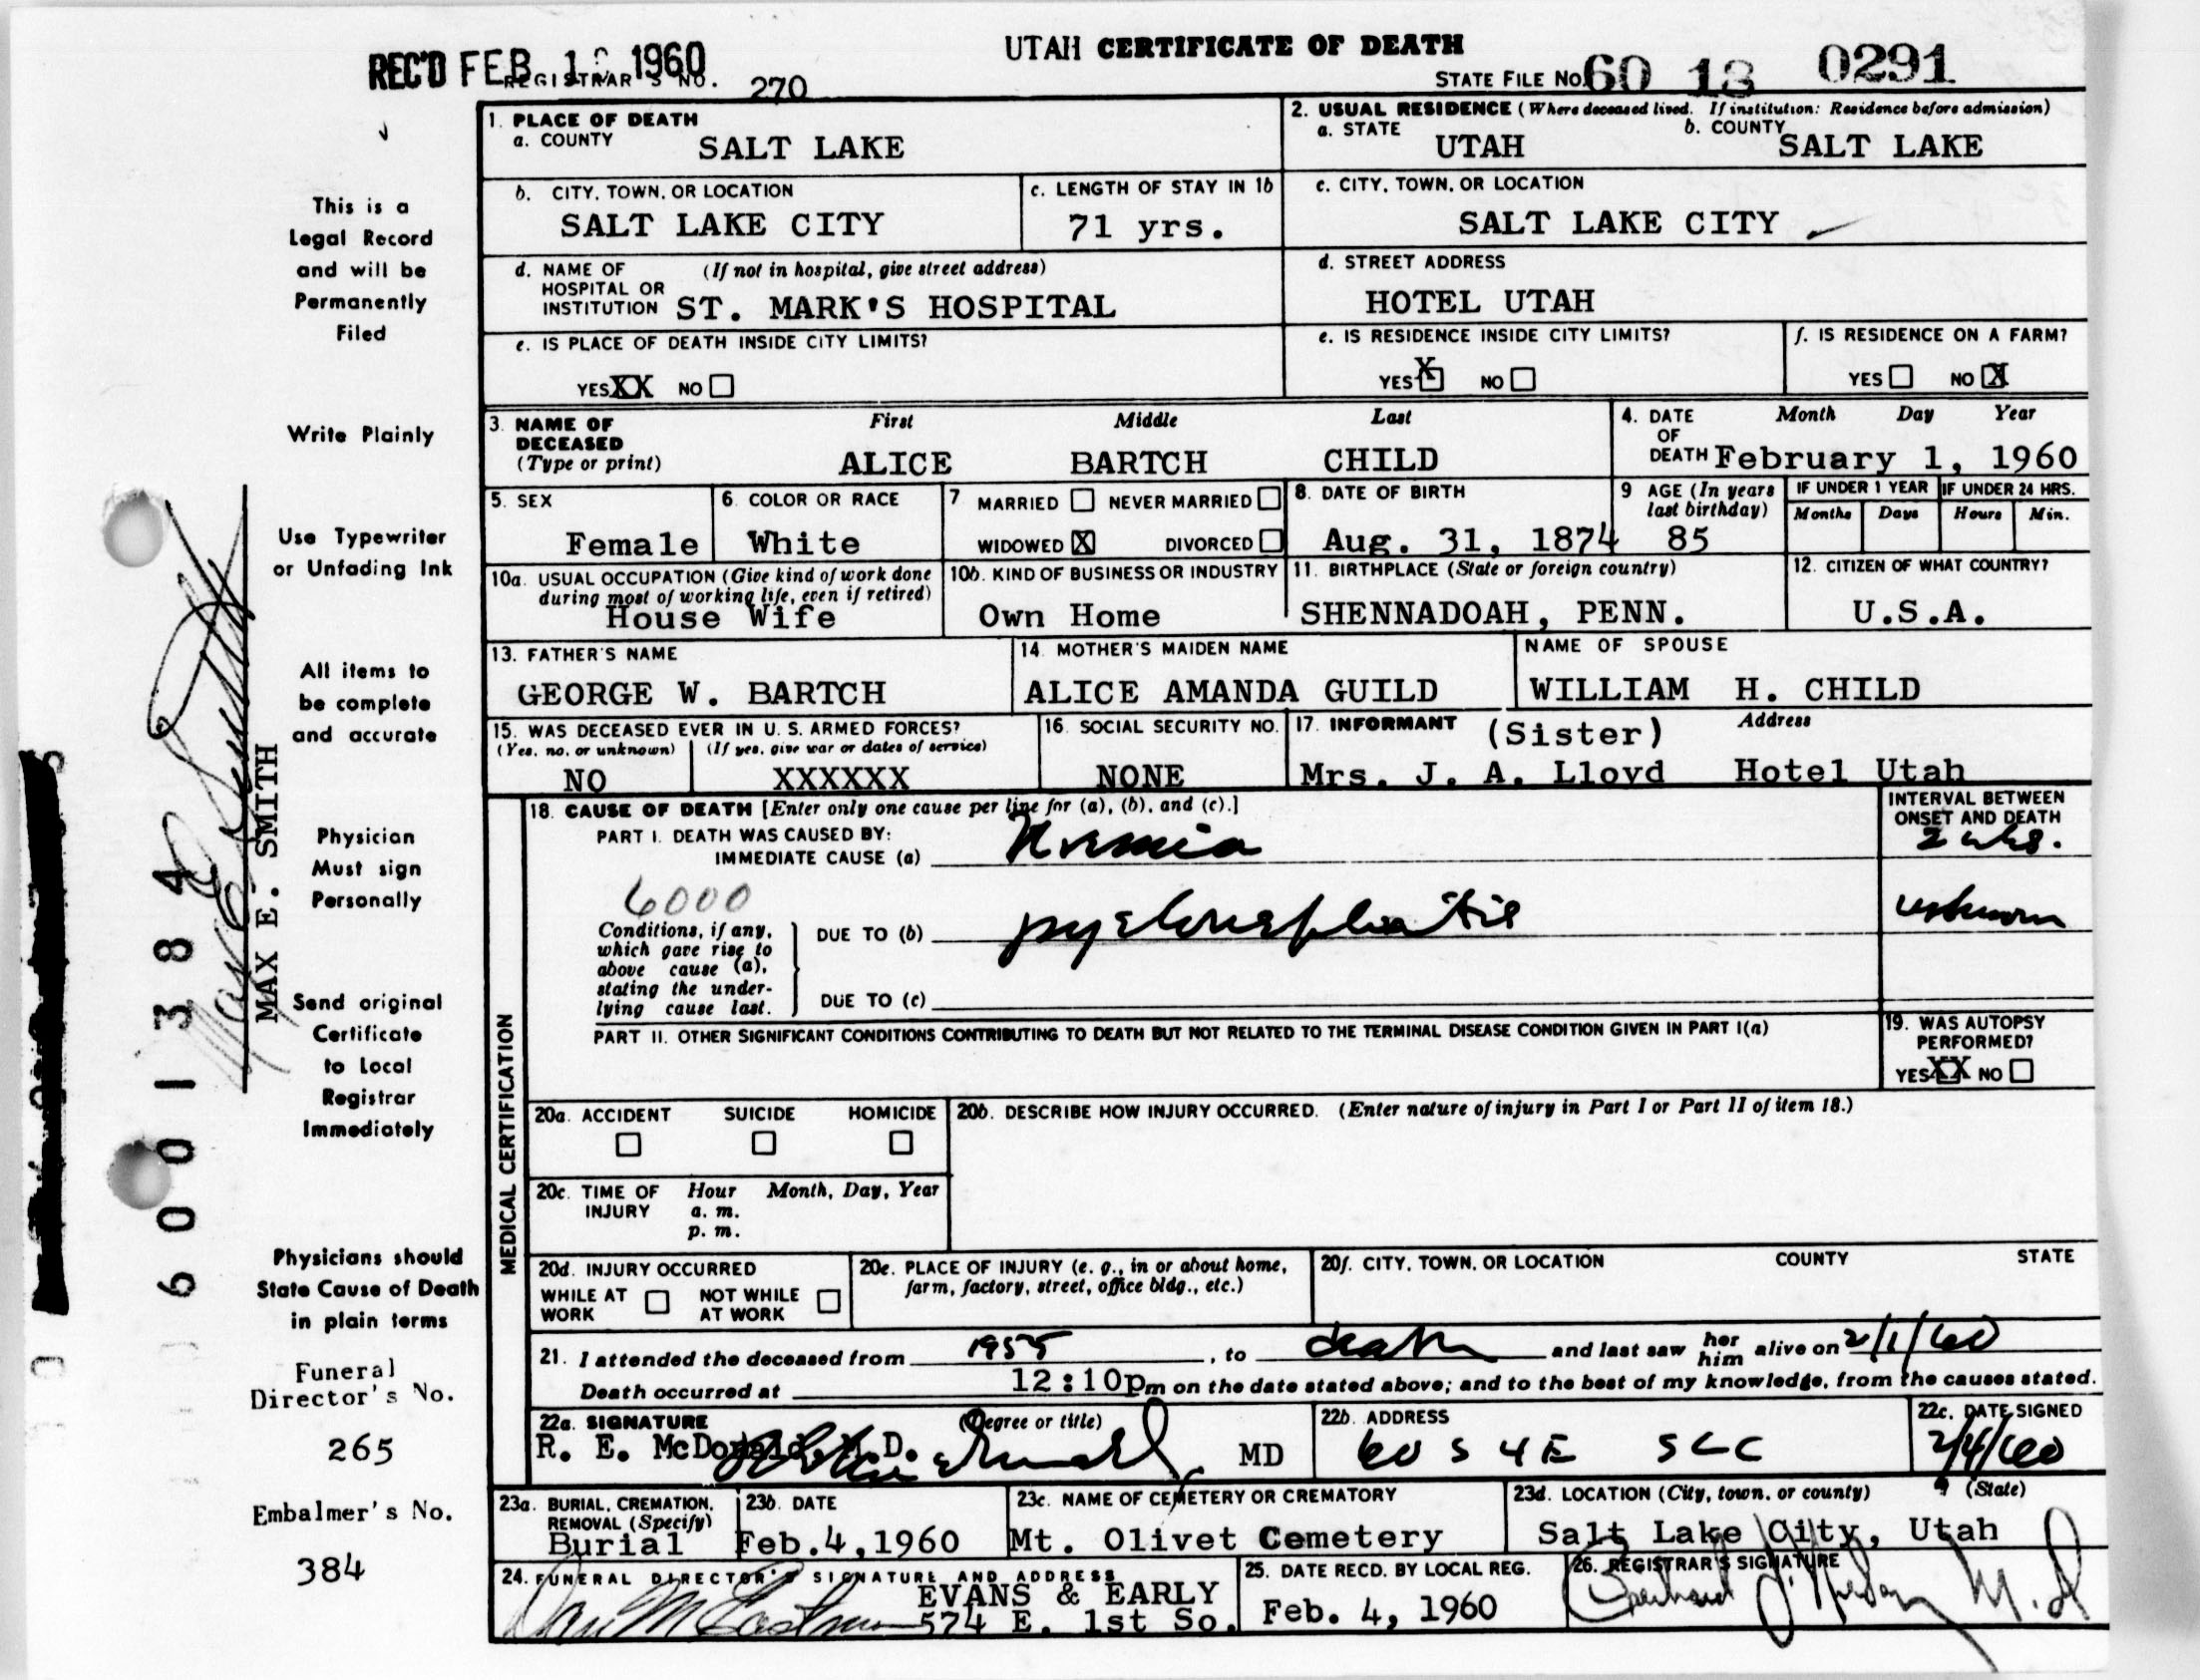 REC'D FEB 1 1960
REGISTRAR'S NO. 270
UTAH CERTIFICATE OF DEATH
STATE FILE NO. 60 18 0291
1. PLACE OF DEATH
a. COUNTY SALT LAKE
2. USUAL RESIDENCE (Where deceased lived. If institution: Residence before admission)
a. STATE UTAH b. COUNTY SALT LAKE
b. CITY, TOWN, OR LOCATION
SALT LAKE CITY
c. LENGTH OF STAY IN 1b
71 yrs.
c. CITY, TOWN, OR LOCATION
SALT LAKE CITY
d. NAME OF HOSPITAL OR INSTITUTION (If not in hospital, give street address)
ST. MARK'S HOSPITAL
d. STREET ADDRESS
HOTEL UTAH
e. IS PLACE OF DEATH INSIDE CITY LIMITS?
YES XX NO
e. IS RESIDENCE INSIDE CITY LIMITS?
YES X NO
f. IS RESIDENCE ON A FARM?
YES NO X
3. NAME OF DECEASED (Type or print)
First Middle Last
ALICE BARTCH CHILD
4. DATE OF DEATH Month Day Year
February 1, 1960
5. SEX
Female
6. COLOR OR RACE
White
7 MARRIED NEVER MARRIED
WIDOWED X DIVORCED
8. DATE OF BIRTH
Aug. 31, 1874
9 AGE (In years last birthday)
85
IF UNDER 1 YEAR IF UNDER 24 HRS.
Months Days Hours Min.
10a. USUAL OCCUPATION (Give kind of work done during most of working life, even if retired)
House Wife
10b. KIND OF BUSINESS OR INDUSTRY
Own Home
11. BIRTHPLACE (State or foreign country)
SHENNADOAH, PENN.
12. CITIZEN OF WHAT COUNTRY?
U.S.A.
13. FATHER'S NAME
GEORGE W. BARTCH
14. MOTHER'S MAIDEN NAME
ALICE AMANDA GUILD
NAME OF SPOUSE
WILLIAM H. CHILD
15. WAS DECEASED EVER IN U. S. ARMED FORCES?
(Yes, no, or unknown) (If yes, give war or dates of service)
NO XXXXXX
16. SOCIAL SECURITY NO.
NONE
17. INFORMANT (Sister) Address
Mrs. J. A. Lloyd Hotel Utah
18. CAUSE OF DEATH [Enter only one cause per line for (a), (b), and (c).]
INTERVAL BETWEEN ONSET AND DEATH
PART I. DEATH WAS CAUSED BY:
IMMEDIATE CAUSE (a) Uremia 2 wks.
6000
Conditions, if any, which gave rise to above cause (a), stating the underlying cause last.
DUE TO (b) pyelonephritis unknown
DUE TO (c)
PART II. OTHER SIGNIFICANT CONDITIONS CONTRIBUTING TO DEATH BUT NOT RELATED TO THE TERMINAL DISEASE CONDITION GIVEN IN PART I(a)
19. WAS AUTOPSY PERFORMED?
YES XX NO
MEDICAL CERTIFICATION
20a. ACCIDENT SUICIDE HOMICIDE
20b. DESCRIBE HOW INJURY OCCURRED. (Enter nature of injury in Part I or Part II of item 18.)
20c. TIME OF INJURY Hour Month, Day, Year
a. m.
p. m.
20d. INJURY OCCURRED
WHILE AT WORK NOT WHILE AT WORK
20e. PLACE OF INJURY (e. g., in or about home, farm, factory, street, office bldg., etc.)
20f. CITY, TOWN, OR LOCATION COUNTY STATE
21. I attended the deceased from 1955, to death and last saw her him alive on 2/1/60
Death occurred at 12:10pm on the date stated above; and to the best of my knowledge, from the causes stated.
22a. SIGNATURE (Degree or title)
R. E. McDonald, M.D. MD
22b. ADDRESS
60 S 4 E SLC
22c. DATE SIGNED
2/4/60
23a. BURIAL, CREMATION, REMOVAL (Specify)
Burial
23b. DATE
Feb.4,1960
23c. NAME OF CEMETERY OR CREMATORY
Mt. Olivet Cemetery
23d. LOCATION (City, town, or county) (State)
Salt Lake City, Utah
24. FUNERAL DIRECTOR'S SIGNATURE AND ADDRESS
EVANS & EARLY
574 E. 1st So.
25. DATE RECD. BY LOCAL REG.
Feb. 4, 1960
26. REGISTRAR'S SIGNATURE
M.D
This is a
Legal Record
and will be
Permanently
Filed
Write Plainly
Use Typewriter
or Unfading Ink
All items to
be complete
and accurate
Physician
Must sign
Personally
Send original
Certificate
to Local
Registrar
Immediately
Physicians should
State Cause of Death
in plain terms
Funeral
Director's No.
265
Embalmer's No.
384
Max E Smith
MAX E. SMITH
6001384